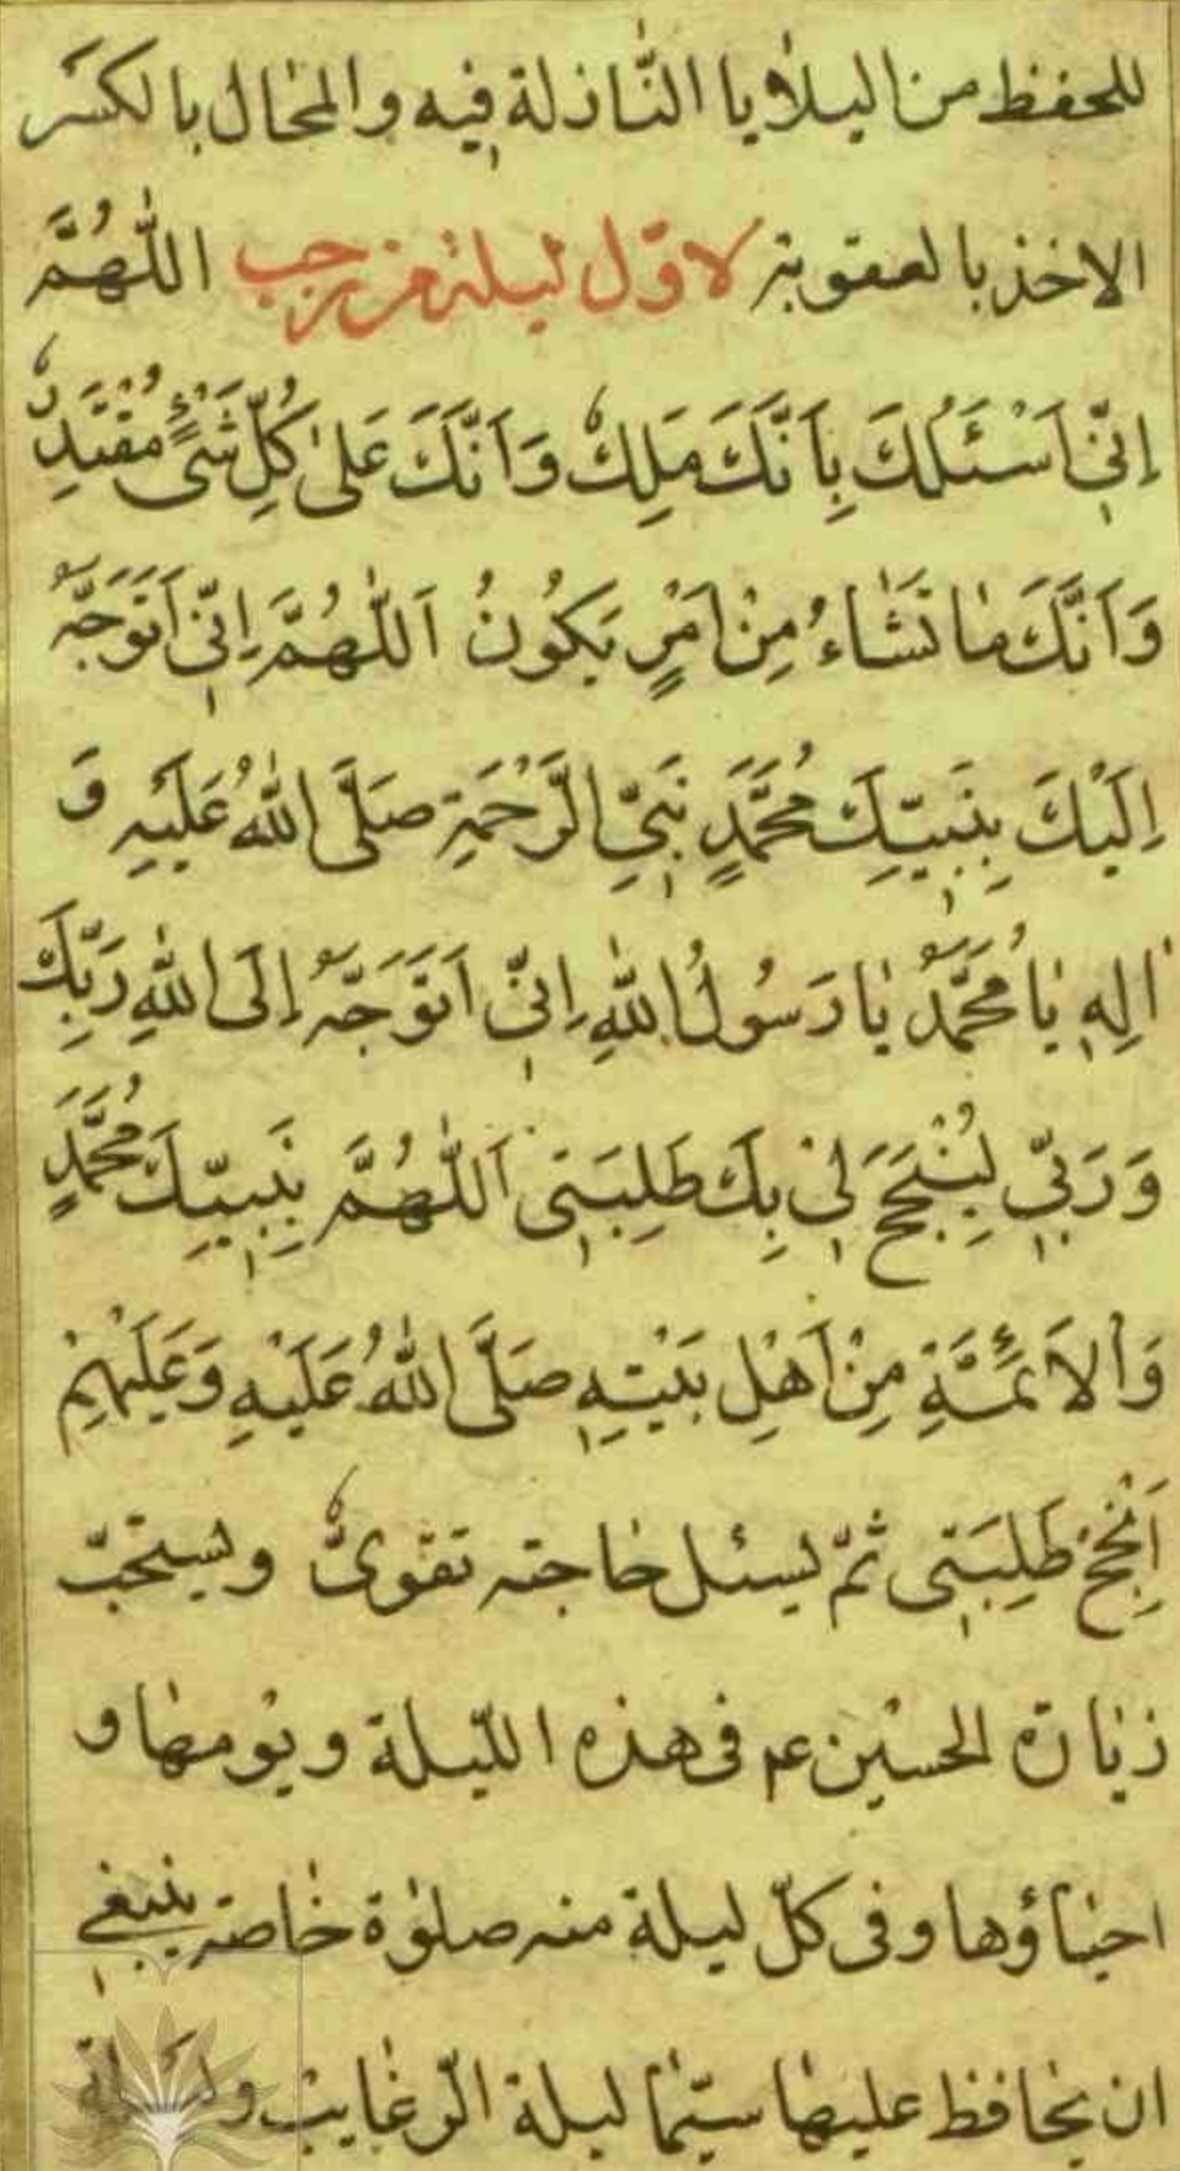 للحفظ من البلايا النّازلة فيه والمحال بالكسر
الاخذ بالعقوبة لاوّل ليلة من رجب اللّٰهُمَّ
اِنّي اَسْئَلُكَ بِاَنَّكَ مَلِكٌ وَاَنَّكَ عَلىٰ كُلِّ شَيْءٍ مُقْتَدِرٌ
وَاَنَّكَ مٰا تَشٰاءُ مِنْ اَمْرٍ يَكُونُ اَللّٰهُمَّ اِنّي اَتَوَجَّهُ
اِلَيْكَ بِنَبِيِّكَ مُحَمَّدٍ نَبِيِّ الرَّحْمَةِ صَلَّى اللّٰهُ عَلَيْهِ وَ
اٰلِهِ يٰا مُحَمَّدُ يٰا رَسُولَ اللّٰهِ اِنّي اَتَوَجَّهُ اِلَى اللّٰهِ رَبِّكَ
وَ رَبّي لِيُنْجِحَ لي بِكَ طَلِبَتي اَللّٰهُمَّ بِنَبِيِّكَ مُحَمَّدٍ
وَالاَئِمَّةِ مِنْ اَهْلِ بَيْتِهِ صَلَّى اللّٰهُ عَلَيْهِ وَعَلَيْهِمْ
اَنْجِحْ طَلِبَتي ثمّ يسئل حاجته تقوىٌّ ويستحبّ
زيٰارة الحسين عم فى هذه اللّيلة ويومهٰا و
احيٰاؤها وفى كلّ ليلة منه صلوٰة خٰاصة ينبغي
ان يحٰافظ عليهٰا سيّمٰا ليلة الرّغٰايب